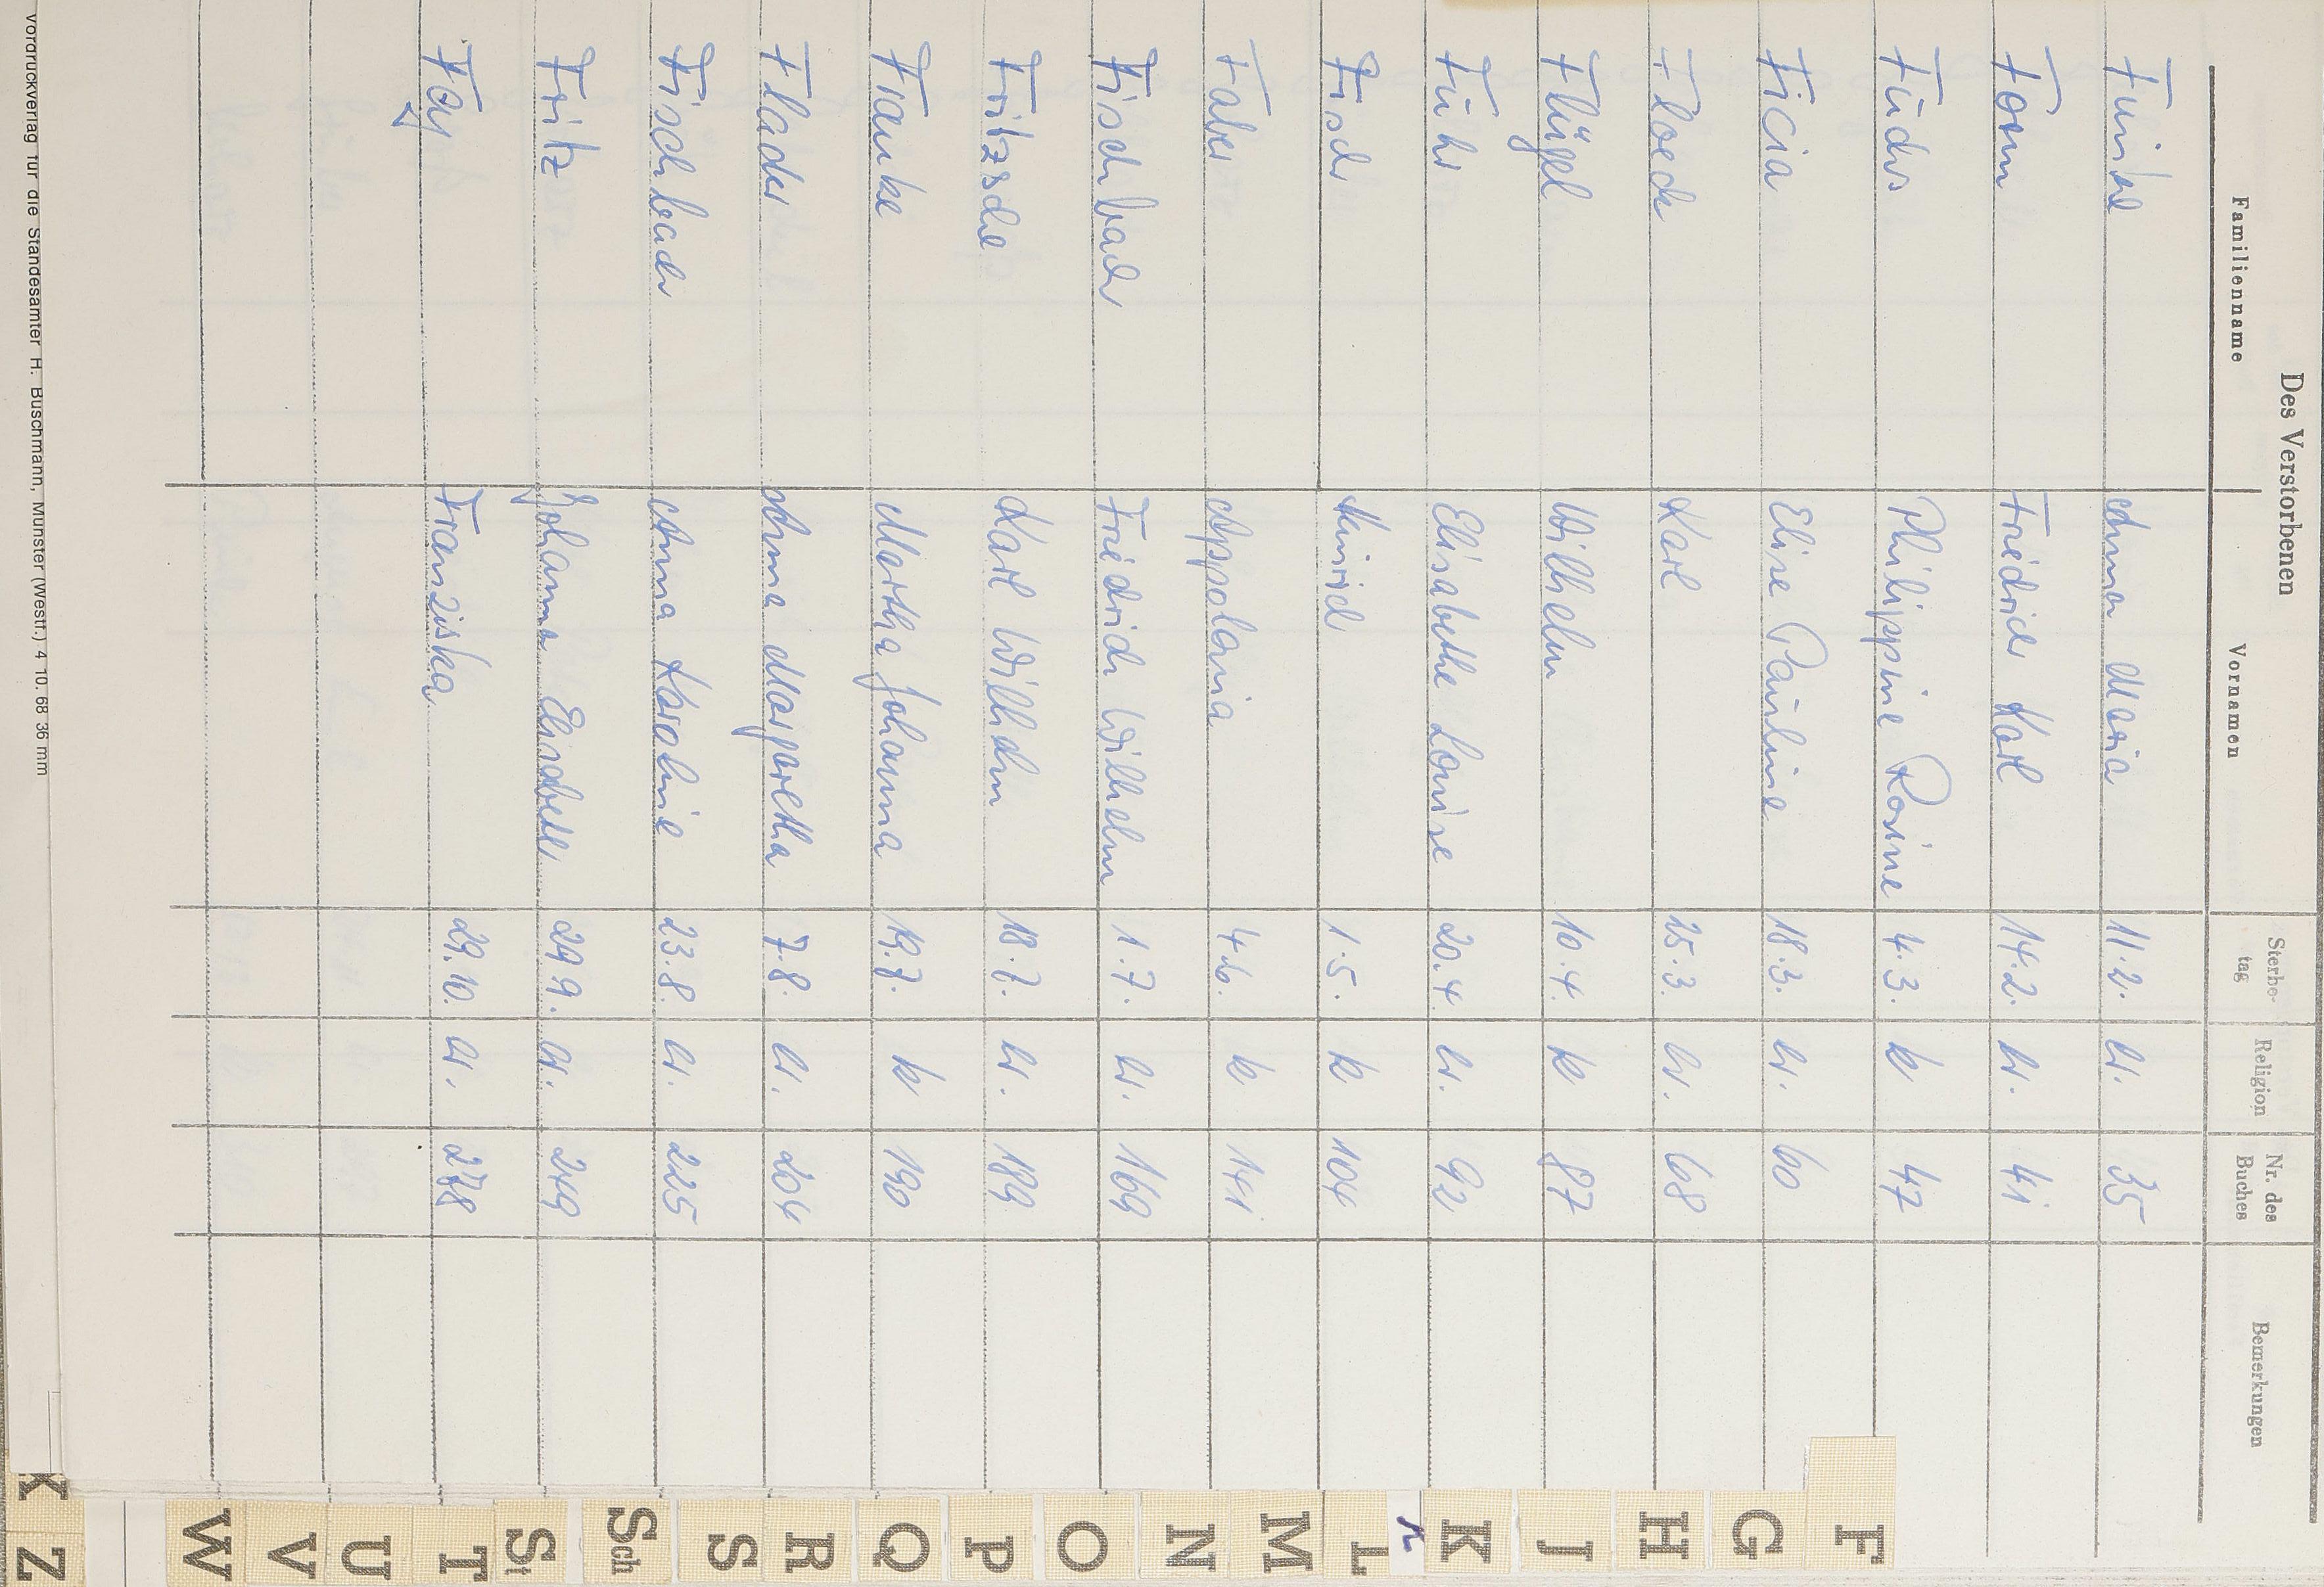 Des Verstorbenen
Familienname Vornamen Sterbe-tag Religion Nr. des Buches Bemerkungen
Funkel Anna Maria 11.2. ev. 35
Fomm Friedrich Karl 14.2. ev. 41
Fuchs Philippine Rosine 4.3. k 47
Ficia Elise Pauline 18.3. ev. 60
Floeck Karl 25.3. ev. 68
Flügel Wilhelm 10.4. k 87
Führ Elisabethe Louise 20.4. ev. 92
Fisch Heinrich 1.5. k 104
Faber Appolonia 4.6. k 141
Fischbach Friedrich Wilhelm 1.7. ev. 169
Fritzsche Karl Wilhelm 18.7. ev. 189
Franke Martha Johanna 19.7. k 190
Flader Anna Margaretha 7.8. ev. 204
Fischbach Anna Karoline 23.8. ev. 225
Fritz Johanna Elisabeth 29.9. ev. 249
Fay Franziska 29.10. ev. 278
Vordruckverlag für die Standesämter H. Buschmann, Münster (Westf.) 4 10. 68 36 mm
F
G
H
J
K
L
M
N
O
P
Q
R
S
Sch
St
T
U
V
W
Z
K